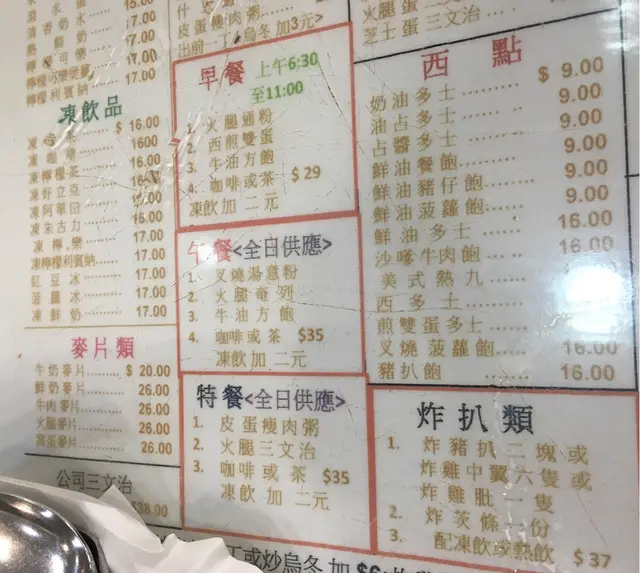 皮蛋瘦肉粥
出前一丁烏冬 加3元>
火腿蛋 三文治
芝士蛋 三文治
15.00
清香奶水 17.00
熱鮮奶 17.00
17.00
17.00
檸檬利賓納 17.00
凍飲品
$ 16.00
凍咖啡 1600
凍檸檬茶 16.00
凍好立克
凍阿華田
凍朱古力 16.00
凍檸樂 17.00
凍檸檬利賓納 17.00
紅豆冰 17.00
菠蘿冰 17.00
凍鮮奶 17.00
麥片類
牛奶麥片 $ 20.00
鮮奶麥片 26.00
牛肉麥片 26.00
火腿麥片 26.00
窩蛋麥片 26.00
公司三文治
$38.00
早餐 上午6:30
至11:00
1. 火腿通粉
2. 西煎雙蛋
3. 牛油方飽
4. 咖啡或茶 $29
凍飲加 二元
午餐<全日供應>
1. 叉燒湯意粉
2. 火腿奄列
3. 牛油方飽
4. 咖啡或茶 $35
凍飲加 二元
特餐<全日供應>
1. 皮蛋瘦肉粥
2. 火腿三文治
3. 咖啡或茶 $35
凍飲加 二元
西點
奶油多士 $ 9.00
油占多士 9.00
占醬多士 9.00
鮮油餐飽 9.00
鮮油豬仔飽 9.00
鮮油菠蘿飽 9.00
鮮油多士 16.00
沙嗲牛肉飽 16.00
美式熱九
西多士
煎雙蛋多士
叉燒菠蘿飽 16.00
豬扒飽 16.00
炸扒類
1. 炸豬扒二塊或
炸雞中翼六隻或
炸雞肶一隻
2. 炸茨條一份
3. 配凍飲或熱飲 $ 37
丁或炒烏冬 加 $6